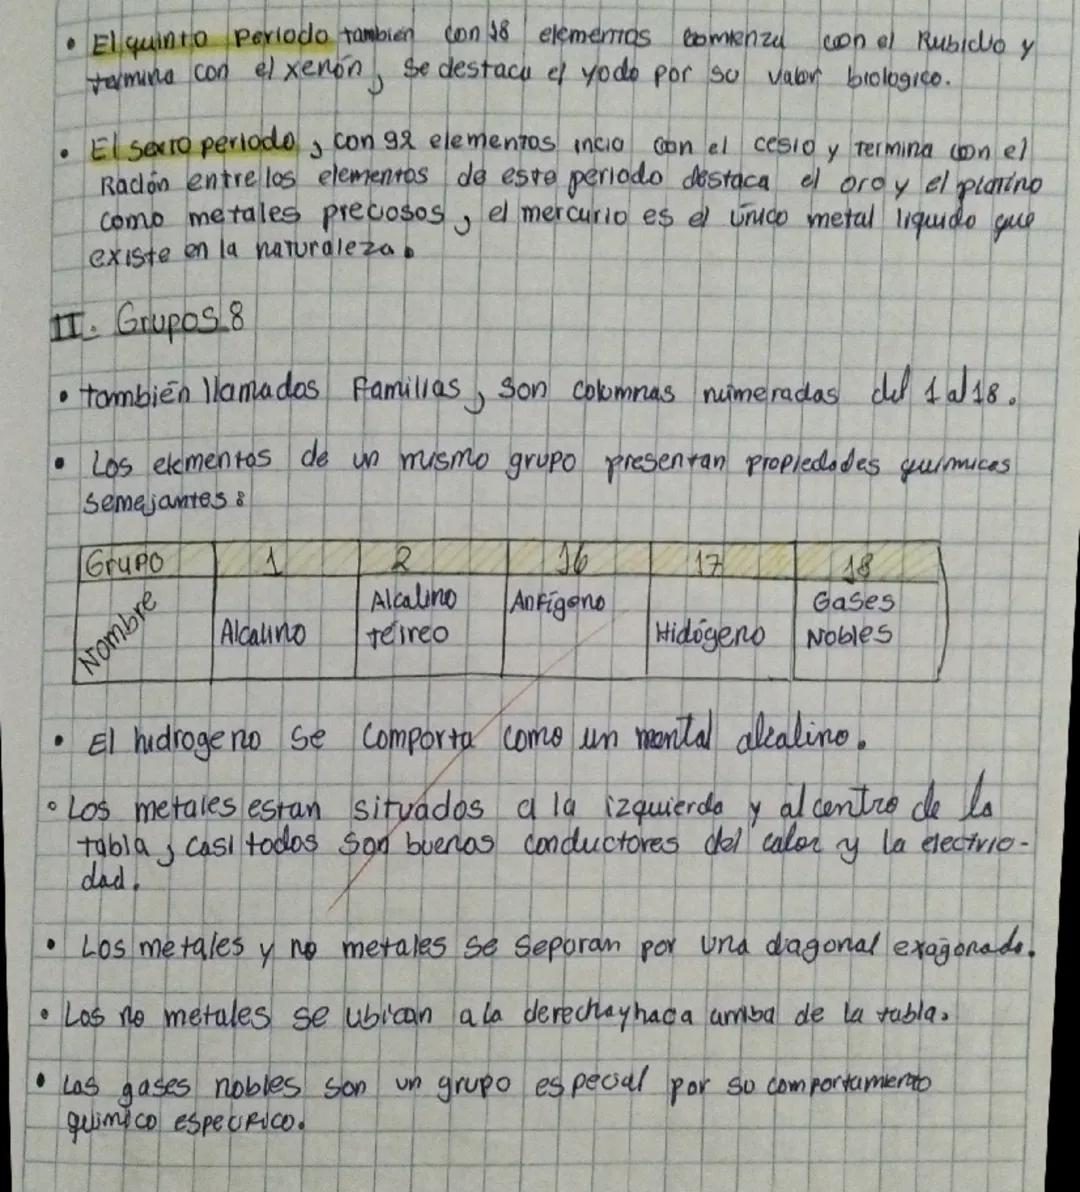 • El quinto periodo también con 18 elementos comienza con el Rubidio y
termina con el xenón, se destaca el yodo por su valor biologico.
• El sexto periodo, con 92 elementos incio con el cesio y termina con el
Radón entre los elementos de este periodo destaca el oro y el platino
como metales preciosos, el mercurio es el único metal liquido que
existe en la naturaleza.
II. Grupos 8
• también llamados Familias, son colomnas numeradas del 1 al 18.
• Los elementos de un mismo grupo presentan propiedades químicas
semejantes:
Grupo 1 2 16 17 18
Nombre Alcalino Alcalino térreo Anfígeno Hidógeno Gases Nobles
• El hidrogeno se comporta como un mental alcalino.
• Los metales estan situados a la izquierda y al centro de la
tabla, casi todos son buenos conductores del calor y la electrio-
dad.
• Los metales y no metales se separan por una diagonal exagonada.
• Los no metales se ubican a la derecha y hacia arriba de la tabla.
• Los gases nobles son un grupo especial por su comportamiento
químico especifico.